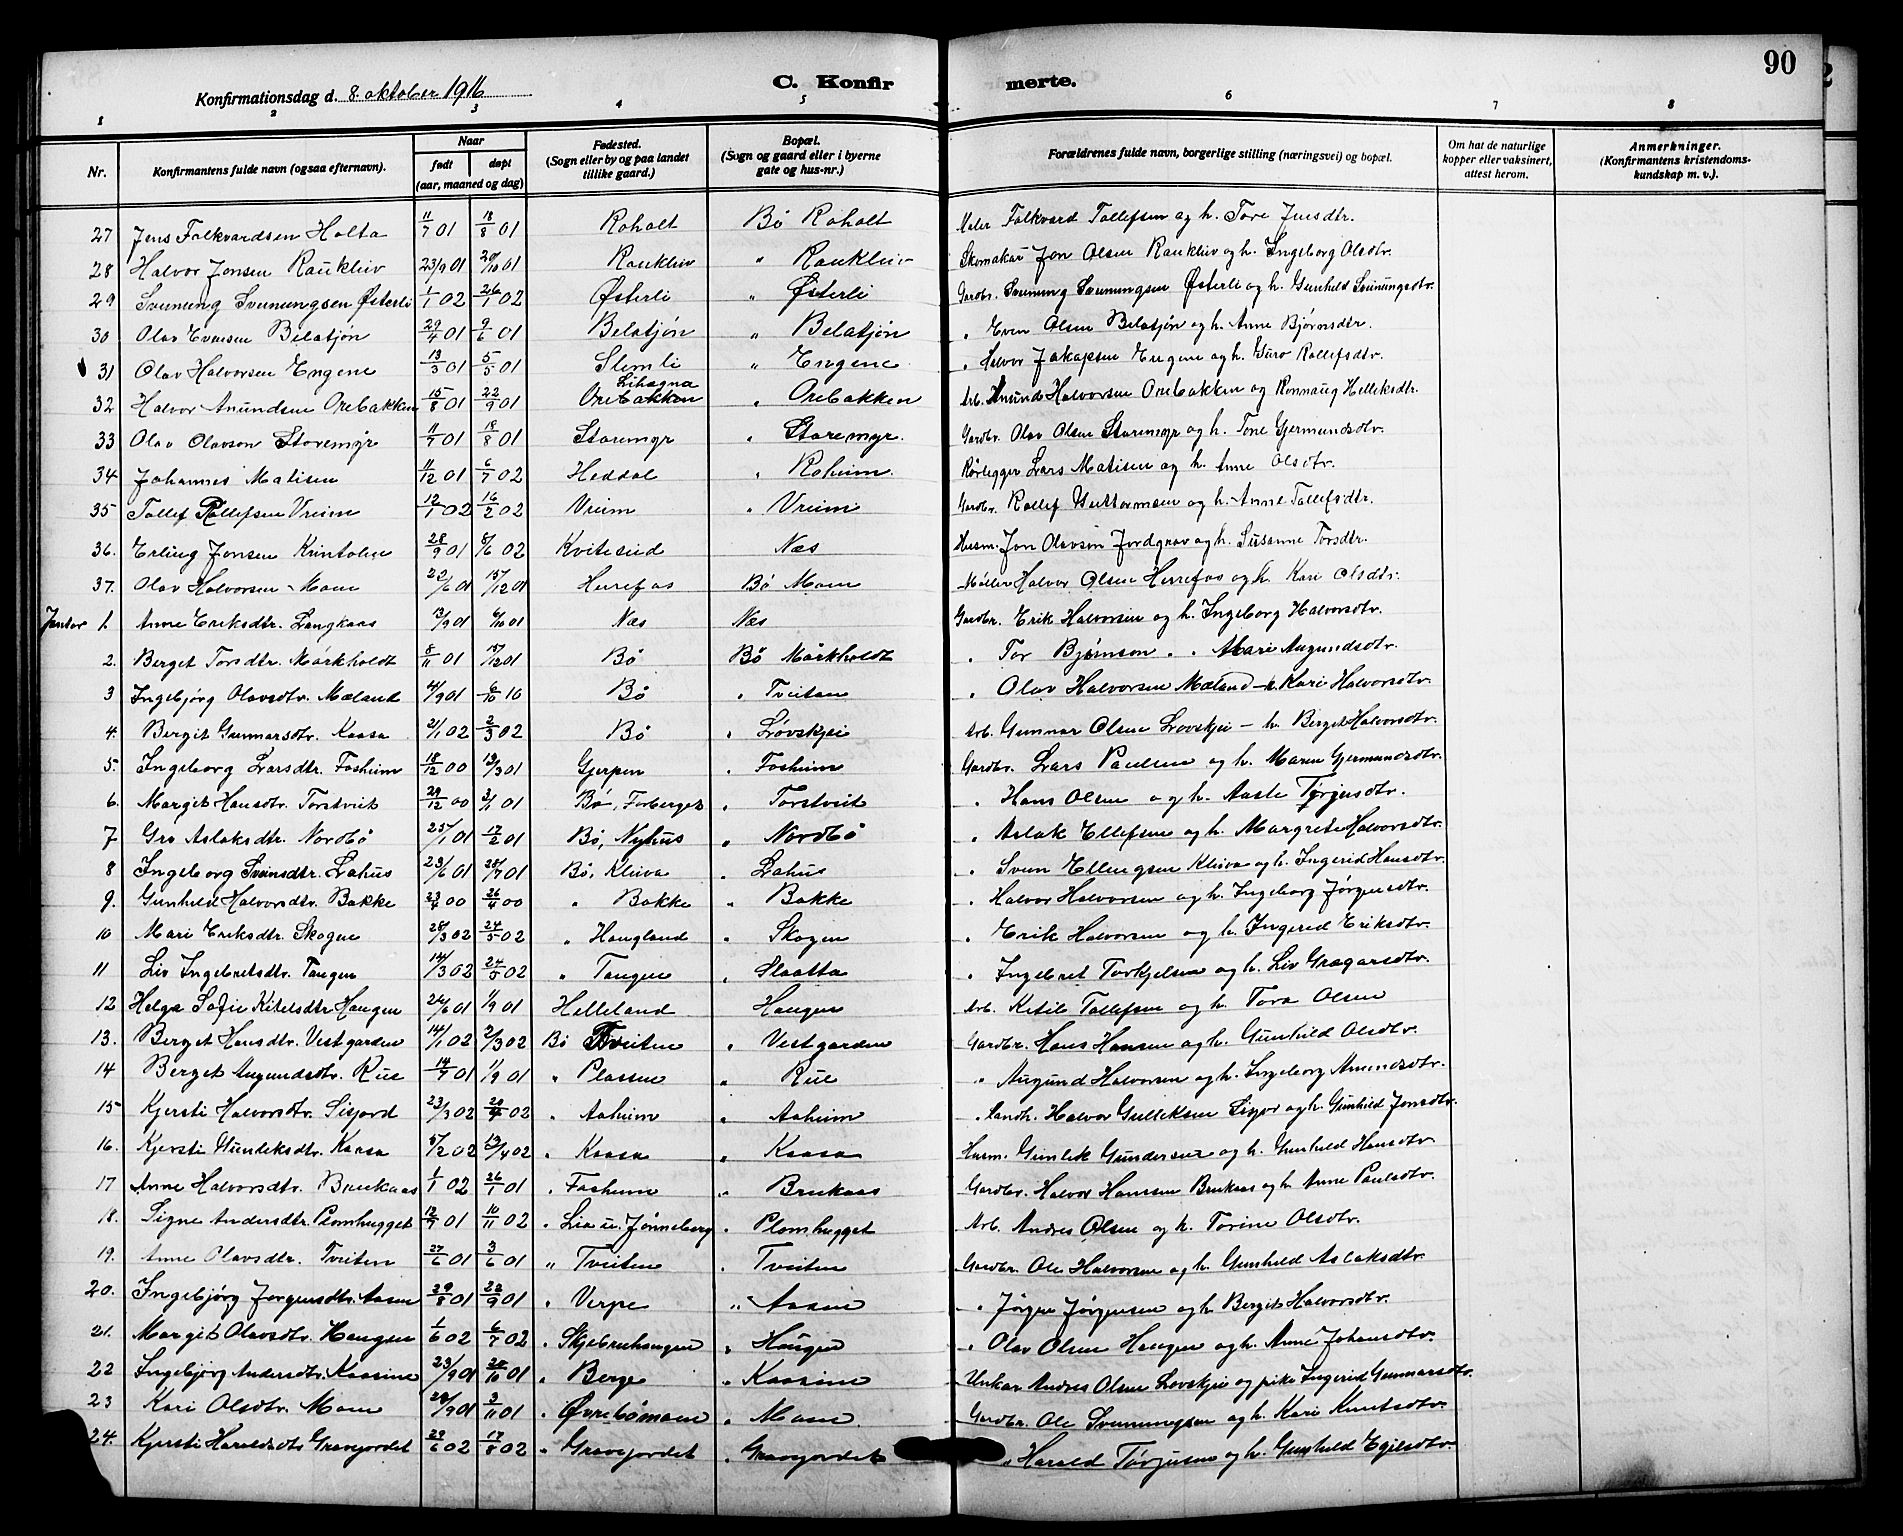 90
Konfirmationsdag d. 8. oktober 1916
C. Konfir merte.
1 2 3 4 5 6 7 8
Nr. Konfirmantens fulde navn (ogsaa efternavn). Naar født døpt (aar, maaned og dag) Fødested. (Sogn eller by og paa landet tillike gaard.) Bopæl. (Sogn og gaard eller i byerne gate og hus-nr.) Forældrenes fulde navn, borgerlige stilling (næringsvei) og bopæl. Om hat de naturlige kopper eller vaksinert, attest herom. Anmerkninger. (Konfirmantens kristendoms-kundskap m. v.).
27 Jens Falkvardsen Holta 11/7 01 18/8 01 Roholt Bø Roholt Maler Falkvard Tollefsen og h. Tore Jensdtr.
28 Halvor Jonsen Raukleiv 23/9 01 20/10 01 Raukleiv " Raukleiv Skomakar Jon Olsen Raukleiv og h. Ingeborg Olsdtr.
29 Svenung Svenungsen Østerli 1/1 02 26/1 02 Østerli " Østerli Gardbr. Svenung Svenungsen Østerli og h. Gunhild Svenungsdtr.
30 Olav Evensen Belatjøn 29/4 01 9/6 01 Belatjøn " Belatjøn " Even Olsen Belatjøn og h. Anne Bjørnsdtr.
31 Olav Halvorsen Engene 13/3 01 5/5 01 Slemli " Engene " Halvor Jakopsen Engene og h. Guro Rollefsdtr.
32 Halvor Anundsen Orebakken 15/8 01 22/9 01 Lihagna Orebakken " Orebakken Arb. Anund Halvorsen Orebakken og Ronnaug Helleksdtr.
33 Olav Olavson Storemyr 11/7 01 18/8 01 Storemyr " Storemyr. Gardbr. Olav Olsen Storemyr og h. Tone Gjermundsdtr.
34 Johannes Matisen 11/12 01 6/7 02 Heddal " Roheim Rørlegger Lars Matisen og h. Anne Olsdtr.
35 Tollef Rollefsen Vreim 12/1 02 16/2 02 Vreim " Vreim Gardbr. Rollef Guttormsen og h. Anne Tollefsdtr.
36. Erling Jonsen 28/9 01 8/6 02 Kviteseid Næs Husm. Jon Olavson Jordgrav og h. Susanne Torsdtr.
37. Olav Halvorsen Moen 22/6 01 15/12 01 Herrefos Bø Moen Møller Halvor Olsen Herrefos og h. Kari Olsdtr.
Jentor 1. Anne Eriksdtr. Langkaas 13/9 01 6/10 01 Næs Næs Gardbr. Erik Halvorsen og h. Ingeborg Halvorsdtr.
2. Berget Torsdtr. Mørkholdt 8/11 01 15/12 01 Bø Bø Mørkholdt " Tor Bjørnson " " Mari Augundsdtr.
3 Ingebjørg Olavsdtr. Mæland 4/9 01 6/10 10 Bø " Tveitan " Olav Halvorsen Mæland - h. Kari Halvorsdtr.
4. Bergit Gunnarsdtr. Kaasa 21/1 02 2/3 02 Bø " Løvskjei Arb. Gunnar Olsen Lovskjei - h. Bergit Halvorsdtr.
5. Ingeborg Larsdtr. Fosheim 18/12 00 13/3 01 Gjerpen " Fosheim Gardbr. Lars Paulsen og h. Maren Gjermundsdtr.
6. Margit Hansdtr. Torstveit 29/12 00 3/1 01 Bø, Forberget " Torstveit " Hans Olsen og h. Aaste Torjusdtr.
7 Gro Aslaksdtr. Nordbø 25/1 01 17/2 01 Bø, Nyhus " Nordbø " Aslak Ellefsen og h. Margrete Halvorsdtr.
8 Ingeborg Sveinsdtr. Lahus 23/6 01 28/7 01 Bø, Kleiva " Lahus " Svein Ellingsen Kleiva og h. Ingerid Hansdtr.
9. Gunhild Halvorsdtr. Bakke 23/4 00 26/4 00 " Bakke " Bakke " Halvor Halvorsen og h. Ingeborg Jørgensdtr.
10 Mari Eriksdtr. Skogen 28/3 02 24/5 02 " Haugland " Skogen " Erik Halvorsen og h. Ingerid Eriksdtr.
11 Liv Ingebretsdtr. Tangen 14/3 02 24/5 02 " Tangen " Slaatta " Ingebret Torkjelsen og h. Liv Gregarsdtr.
12 Helga Sofie Kitelsdtr. Haugen 26/6 01 1/9 01 Helleland Haugen Arb. Ketil Tollefsen og h. Tora Olsen
13. Berget Hansdtr. Vestgarden 14/1 02 2/3 02 Bø Tveiten " Vestgarden Gardbr. Hans Hansen og h. Gunhild Olsdtr.
14 Berget Augundsdtr. Rue 14/7 01 1/9 01 " Plassen " Rue " Augund Halvorsen og h. Ingeborg Anundsdtr.
15 Kjersti Halvorsdtr. Sisjord 23/3 02 20/4 02 " Aaheim " Aaheim " Landh. Halvor Gulleksen og h. Gunhild Jonsdtr.
16. Kjersti Gunleiksdtr. Kaasa 5/2 02 13/4 02 " Kaasa " Kaasa Husm. Gunleik Gundersen og h. Gunhild Hansdtr.
17 Anne Halvorsdtr. Brekaas 1/1 02 26/1 01 " Fosheim " Brekaas Gardbr. Halvor Hanssen Brekaas og h. Anne Paulsdtr.
18. Signe Andersdtr. Plomhugget 12/9 01 10/11 02 " Lia u. Jønneberg " Plomhugget Arb. Andres Olsen og h. Torine Olsdtr.
19. Anne Olavsdtr. Tveiten 27/6 01 3/6 01 " Tveiten " Tveiten Gardbr. Ole Halvorsen og h. Gunhild Aslaksdtr.
20. Ingebjørg Jørgensdtr. Aasen 29/8 01 22/9 01 " Verpe " Aasen " Jørgen Jørgensen og h. Bergit Halvorsdtr.
21. Margit Olavsdtr. Haugen 1/6 02 6/7 02 " Skjelbreihaugen " Haugen " Olav Olsen Haugen og h. Anne Johansdtr.
22 Ingebjørg Andersdtr. Kaasine 23/9 01 20/10 01 " Berge " Kaasine Unkar Andres Olsen Lovskjei og pike Ingerid Gunnarsdtr.
23 Kari Olsdtr. Moen 28/9 01 3/11 01 " Øvrebømoen " Moen Gardbr. Ole Svennungsen og h. Kari Knutsdtr.
24. Kjersti Haraldsdtr. Gravejordet 29/6 02 17/8 02 " Gravejordet " Gravejordet " Harald Torjusen og h. Gunhild Egilsdtr.